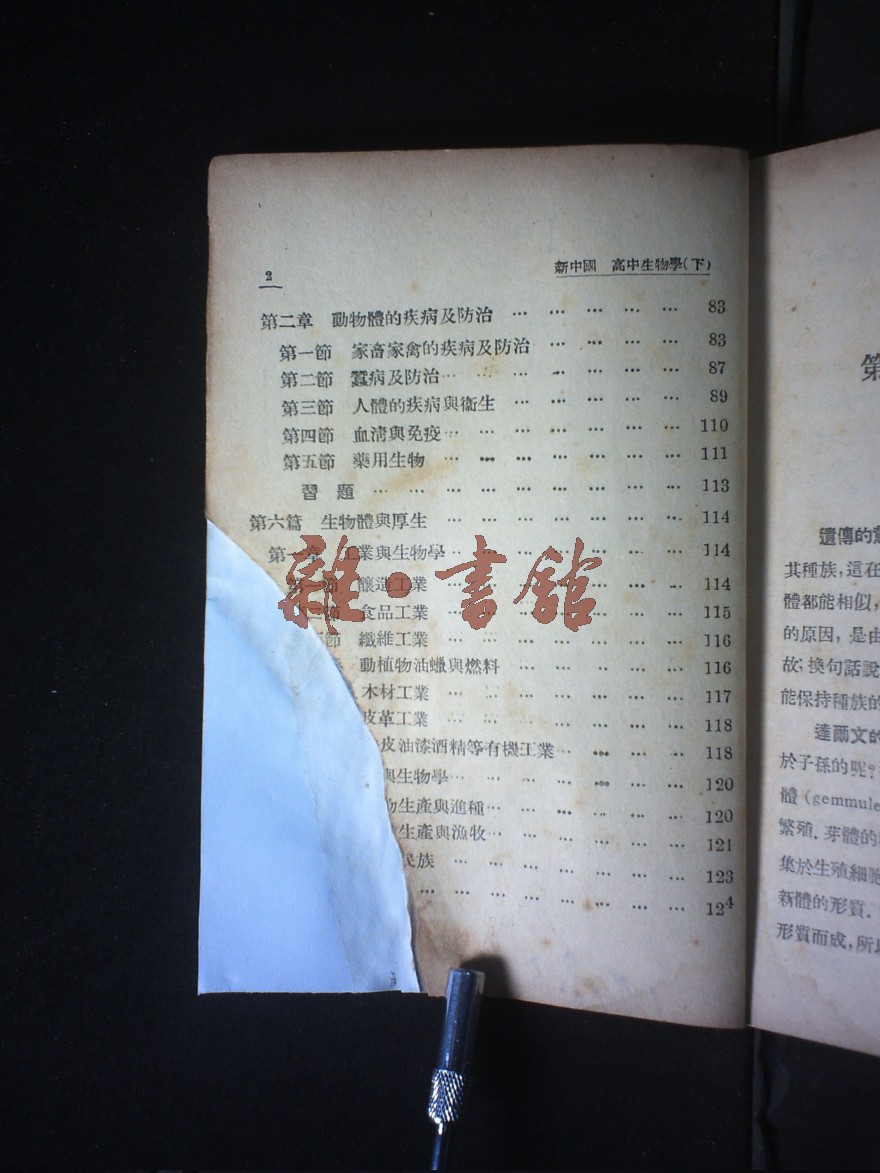 2
新中國 高中生物學(下)
第二章 動物體的疾病及防治 … … … … … 83
第一節 家畜家禽的疾病及防治 … … … … 83
第二節 蠶病及防治… … … … … … … 87
第三節 人體的疾病與衞生 … … … … … 89
第四節 血清與免疫… … … … … … … 110
第五節 藥用生物 … … … … … … … 111
習題 … … … … … … … … … 113
第六篇 生物體與厚生 … … … … … … … 114
第一章 工業與生物學… … … … … … … 114
第一節 釀造工業 … … … … … … … 114
二節 食品工業 … … … … … … … 115
節 纖維工業 … … … … … … … 116
動植物油蠟與燃料 … … … … … 116
木材工業 … … … … … … … 117
皮革工業 … … … … … … … 118
皮油漆酒精等有機工業… … … … 118
與生物學… … … … … … … 120
物生產與進種… … … … … … 120
生產與漁牧… … … … … … 121
民族 … … … … … … … 123
… … … … … … … … 124
雜·書館
第
遺傳的意
其種族,這在
體都能相似,
的原因,是由
故;換句話說
能保持種族的
達爾文的
於子孫的呢?
體(gemmule
繁殖.芽體的
集於生殖細胞
新體的形質.
形質而成,所以